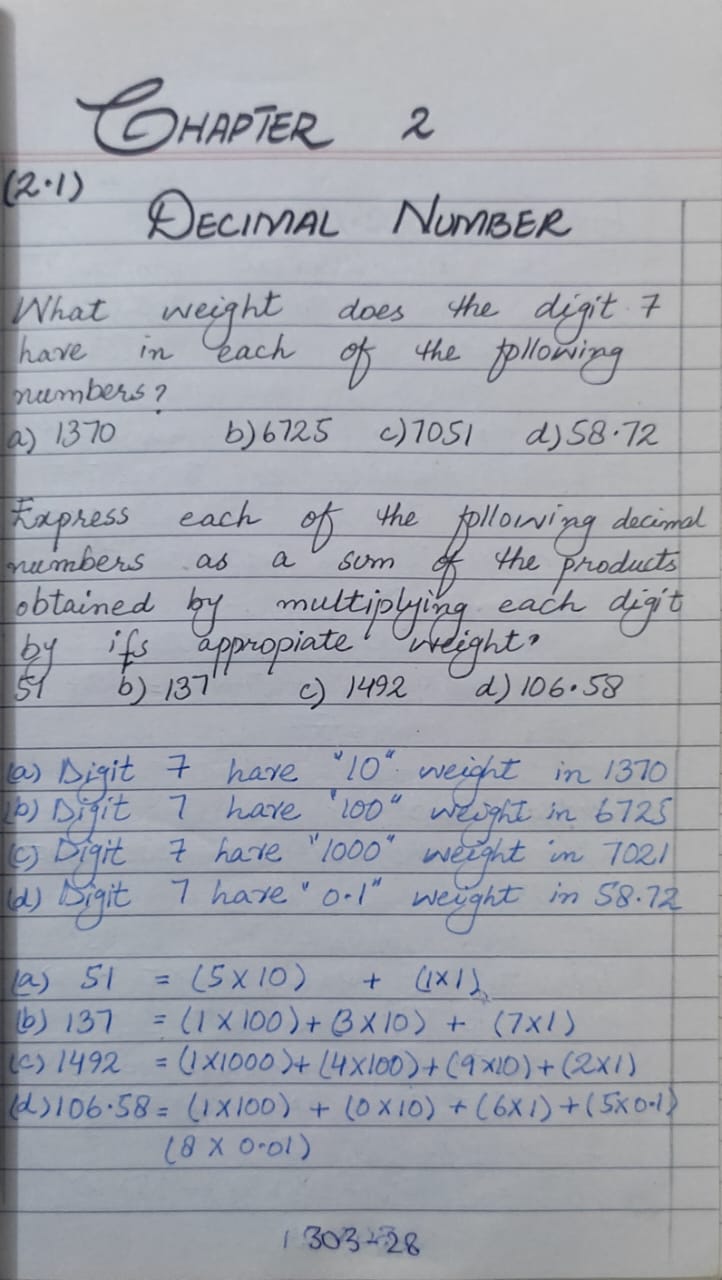 CHAPTER 2
(2.1)
DECIMAL NUMBER
What weight does the digit 7
have in each of the following
numbers?
a) 1370 b) 6725 c) 7051 d) 58.72
Express each of the following decimal
numbers as a sum of the products
obtained by multiplying each digit
by ifs appropiate weight?
51 b) 137 c) 1492 d) 106.58
(a) Digit 7 have "10" weight in 1370
(b) Digit 7 have "100" weight in 6725
(c) Digit 7 have "1000" weight in 7021
(d) Digit 7 have "0.1" weight in 58.72
(a) 51 = (5 X 10) + (1 X 1)
(b) 137 = (1 X 100) + (3 X 10) + (7 X 1)
(c) 1492 = (1X1000) + (4X100) + (9X10) + (2X1)
(d) 106.58 = (1X100) + (0X10) + (6X1) + (5X0.1)
(8 X 0.01)